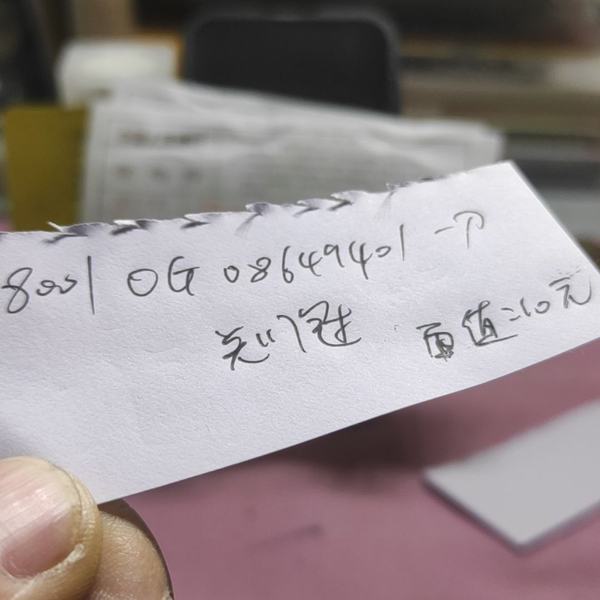 8001 OG 08649401 一个
关门冠 面值:10元